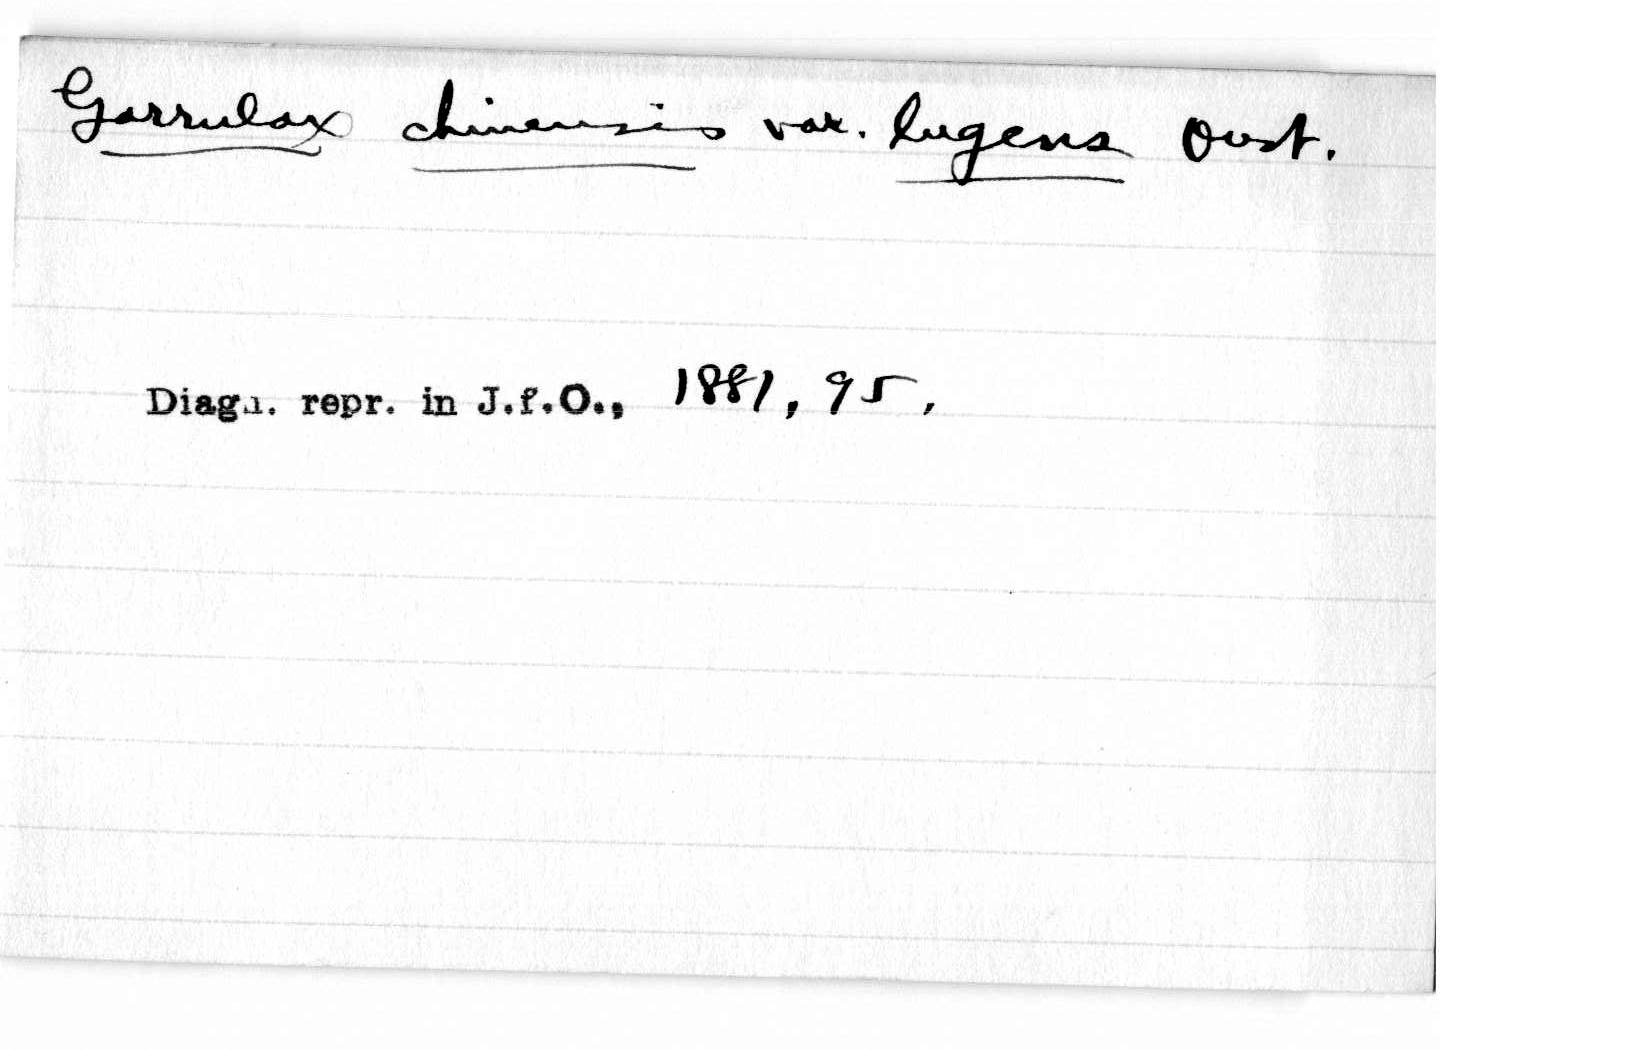 Garrulax chinensis var. lugens Oust.
Diagn. repr. in J.f.O., 1881, 95,